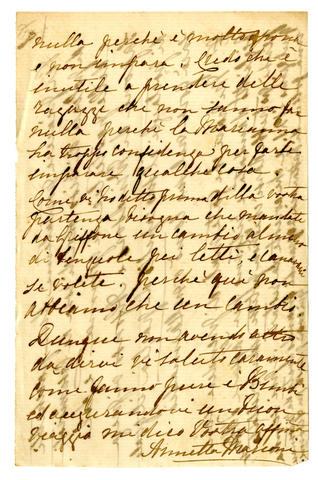 nulla perchè è molto
e non impara. Credo che è
inutile a prendere delle
ragazze che non sanno far
nulla perchè la Marianna
ha troppo confidenza per farle
imparare qualche cosa.
Come vi ho detto prima della vostra
partenza bisogna che mandate
da un cambio almeno
di per letti, e
se volete. perchè quà non
abbiamo che un cambio.
Dunque non avendo altro
da dirvi vi saluto caramente
come fanno pure e
ed augurandovi un buon
viaggio mi dico Vostra
Annetta